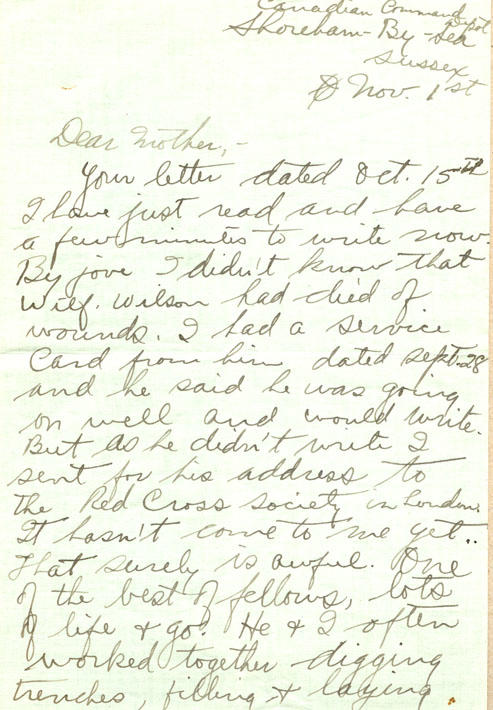 Canadian Command Depot
Shoreham-By-Sea
Sussex
Nov. 1st
Dear Mother,-
Your letter dated Oct. 15th
I have just read and have
a few minutes to write now.
By jove I didn't know that
Wilf. Wilson had died of
wounds. I had a service
Card from him dated Sept. 28
and he said he was going
on well and would write.
But as he didn't write I
sent for his address to
the Red Cross Society in London.
It hasn't come to me yet..
That surely is awful. One
of the best of fellows, lots
of life & go. He & I often
worked together digging
trenches, filling & laying